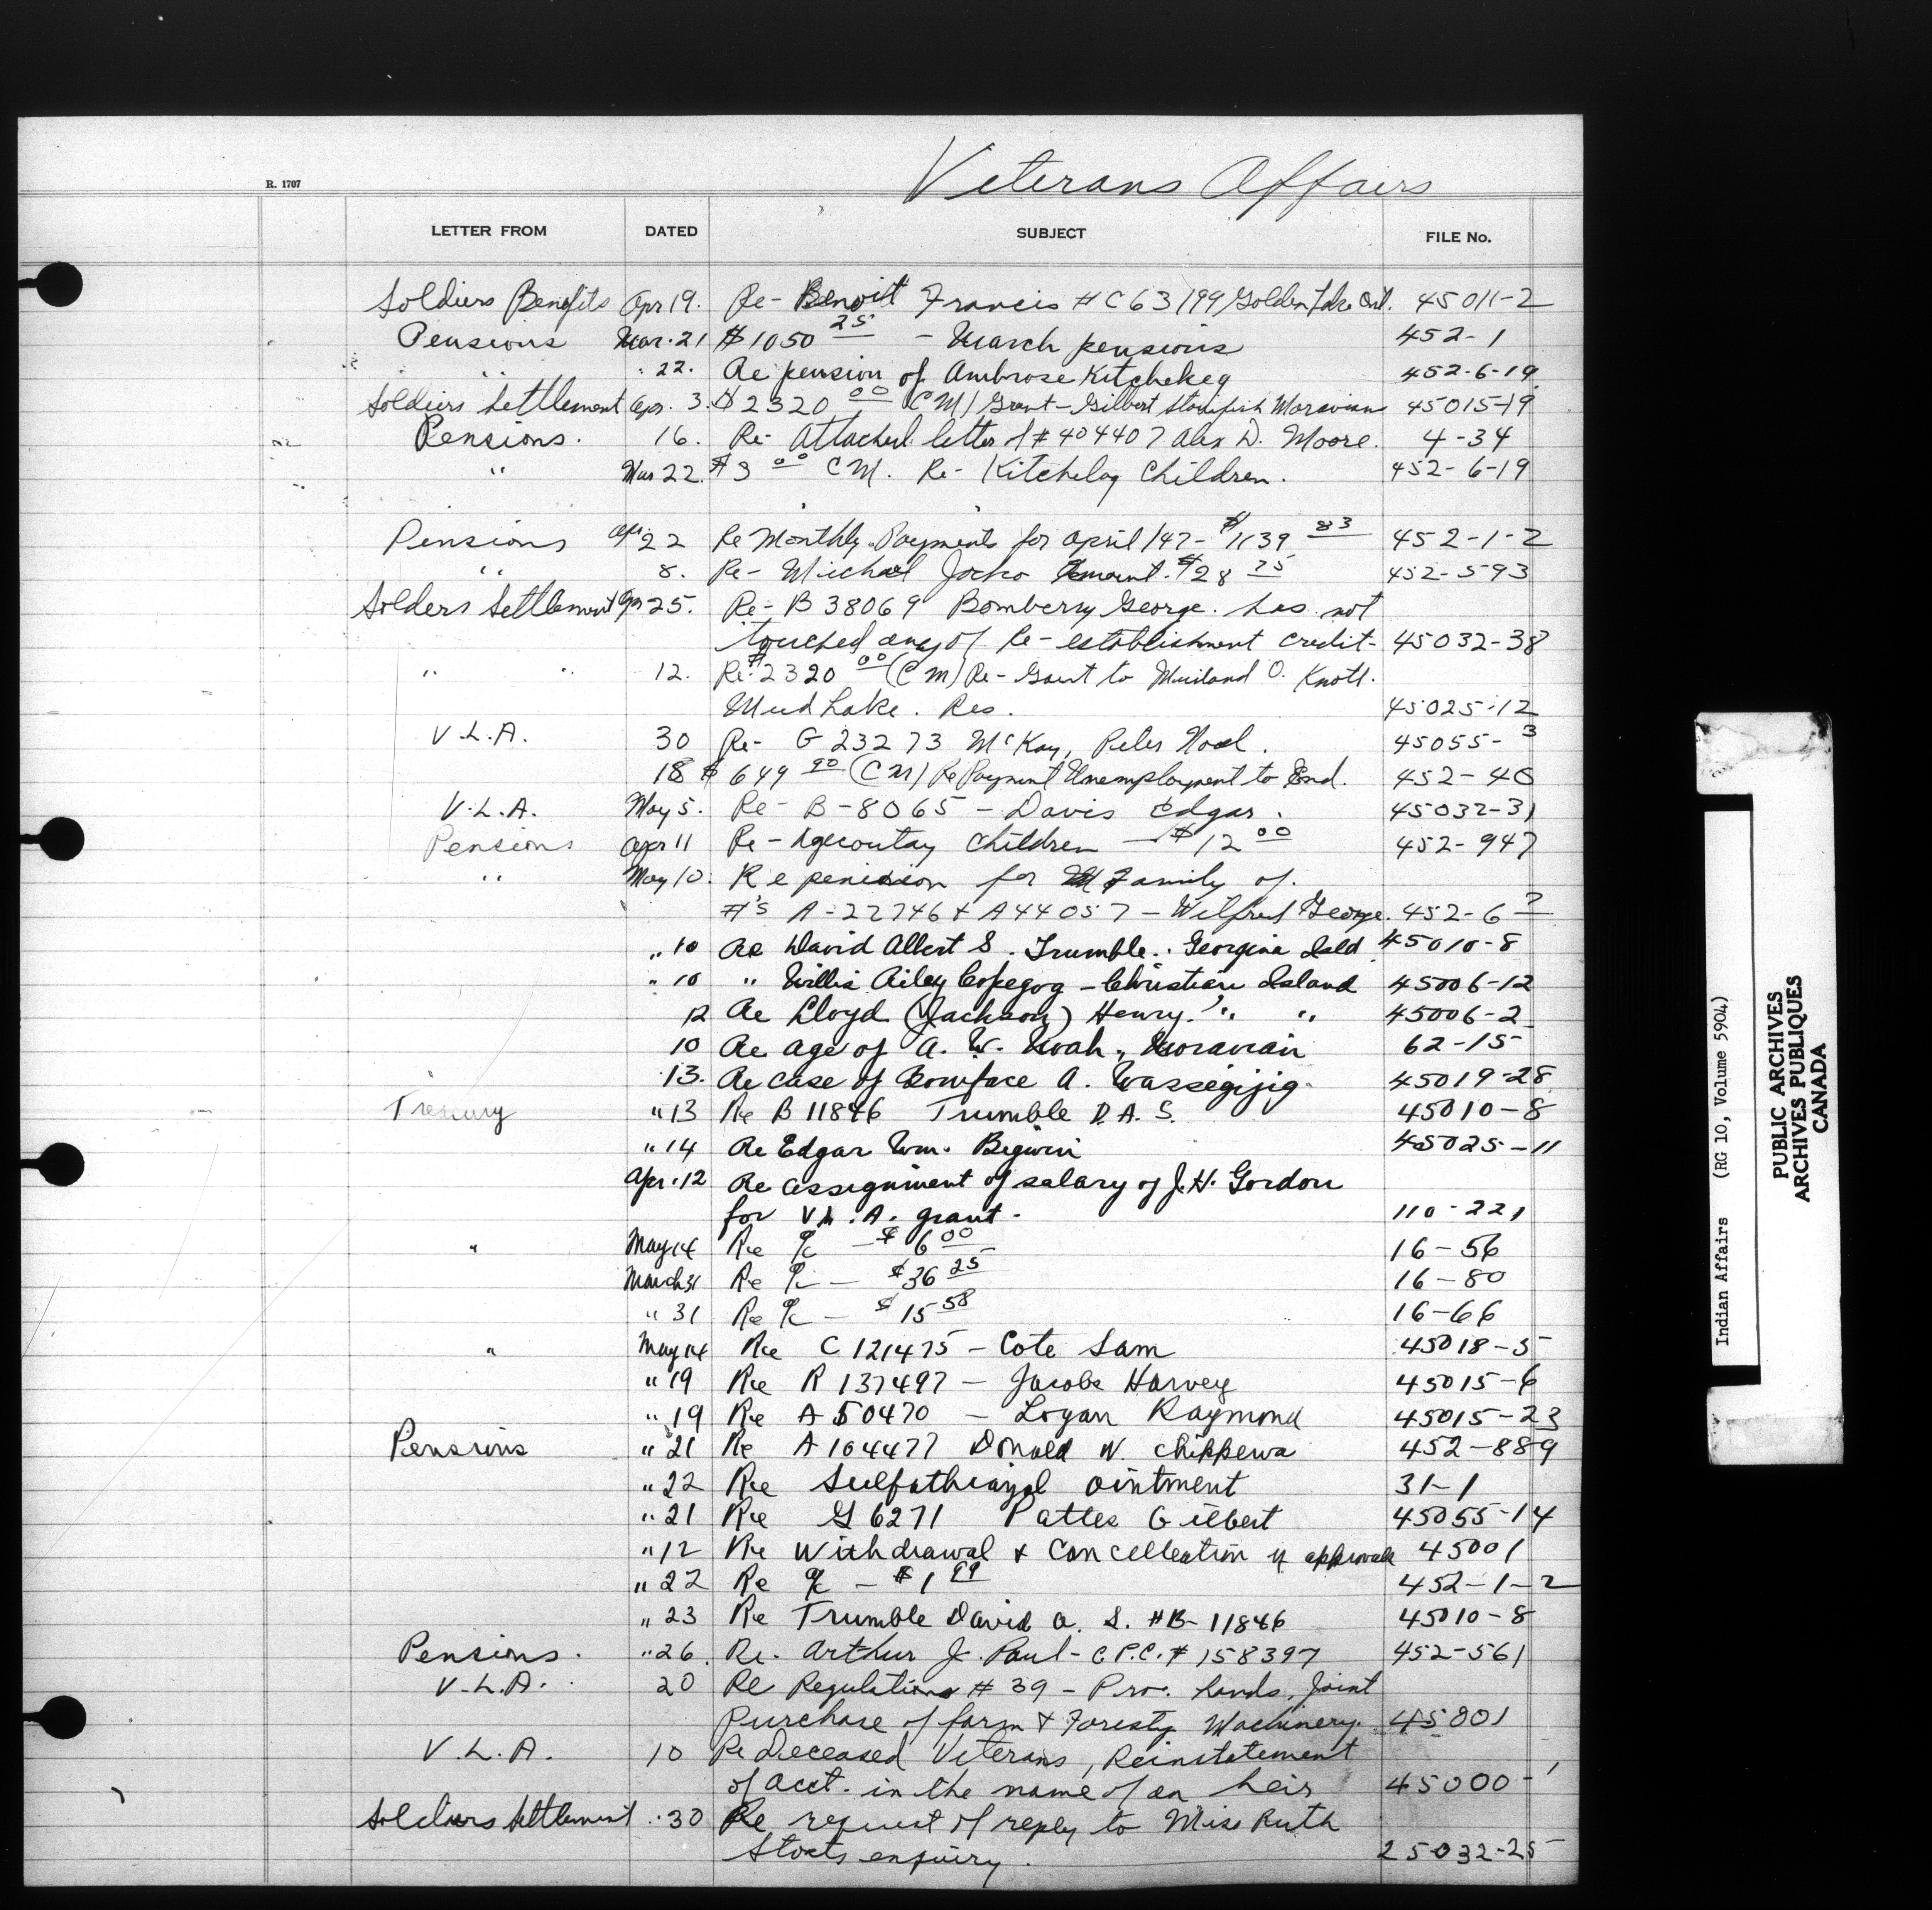 Veterans Affairs
R. 1707
LETTER FROM DATED SUBJECT FILE No.
Soldiers Benefits Apr 19. Re- Benoit Francis #C63199 Golden Lake Ont. 45011-2
Pensions Mar. 21 $1050 25 - March pensions 452-1
" 22. Re pension of Ambrose Kitchekeg 452-6-19
Soldiers Settlement Apr. 3. $2320 00 (CM) Grant - Gilbert Stonefish Moravian 45015-19
Pensions. 16. Re- Attached letter of #404407 Alex D. Moore. 4-34
" Mar 22. $3 00 CM. Re- Kitchelog Children. 452-6-19
Pensions Apr 22 Re Monthly Payments for April/47 - $1139 83 452-1-2
" 8. Re- Michael Jocko Amount. $28 75 452-593
Solders Settlement Apr 25. Re- B38069 Bomberry George. has not
touched any of Re-establishment credit- 45032-38
" " 12. Re: $2320 00 (CM) Re- Grant to O. Knott.
Mud Lake. Res. 45025-12
V.L.A. 30 Re- G23273 McKay, Peter Noel. 45055-3
18 $649 90 (CM) Re Payment Unemployment to Ind. 452-40
V.L.A. May 5. Re- B-8065 - Davis Edgar. 45032-31
Pensions Apr 11 Re- children - $12 00 452-947
" May 10. Re pension for Family of.
#'s A-22746 & A44057 - Wilfred George. 452-6 ?
" 10 Re David Albert S. Trumble. Georgina Isld 45010-8
" 10 " Willis Riley Copegog - Christian Island 45006-12
12 Re Lloyd (Jackson) Henry. " " 45006-2
10 Re age of A. W. Noah, Moravian 62-15
13. Re case of Boniface A. Wassegijig. 45019-28
Treasury " 13 Re B11846 Trumble D.A.S. 45010-8
" 14 Re Edgar Wm. Bigwin 45025-11
Apr. 12 Re assignment of salary of J.H. Gordon
for V.L.A. grant. 110-221
" May 14 Re a/c - $6 00 16-56
March 31 Re a/c - $36 25 16-80
" 31 Re a/c - $15 58 16-66
" May 14 Re C121475 - Cote Sam 45018-5
" 19 Re R137497 - Jacobs Harvey 45015-6
" 19 Re A50470 - Logan Raymond 45015-23
Pensions " 21 Re A104477 Donald N. Chippewa 452-889
" 22 Re Sulfathiazol Ointment 31-1
" 21 Re G6271 Patles Gilbert 45055-14
" 12 Re Withdrawal & Cancelleation of approvals 45001
" 22 Re a/c - $1 99 452-1-2
" 23 Re Trumble David A. S. #B-11846 45010-8
Pensions. " 26. Re. Arthur J. Paul - C.P.C. # 158397 452-561
V.L.A. 20 Re Regulations # 39 - Pro. Lands, Joint
Purchase of farm & Forestry Machinery. 45001
V.L.A. 10 Re Deceased Veterans, Reinstatement
of acct. in the name of an heir 45000-1
Soldiers Settlement " 30 Re request of reply to Miss Ruth
Stoats enquiry. 25032-25
Indian Affairs (RG 10, Volume 5904)
PUBLIC ARCHIVES
ARCHIVES PUBLIQUES
CANADA